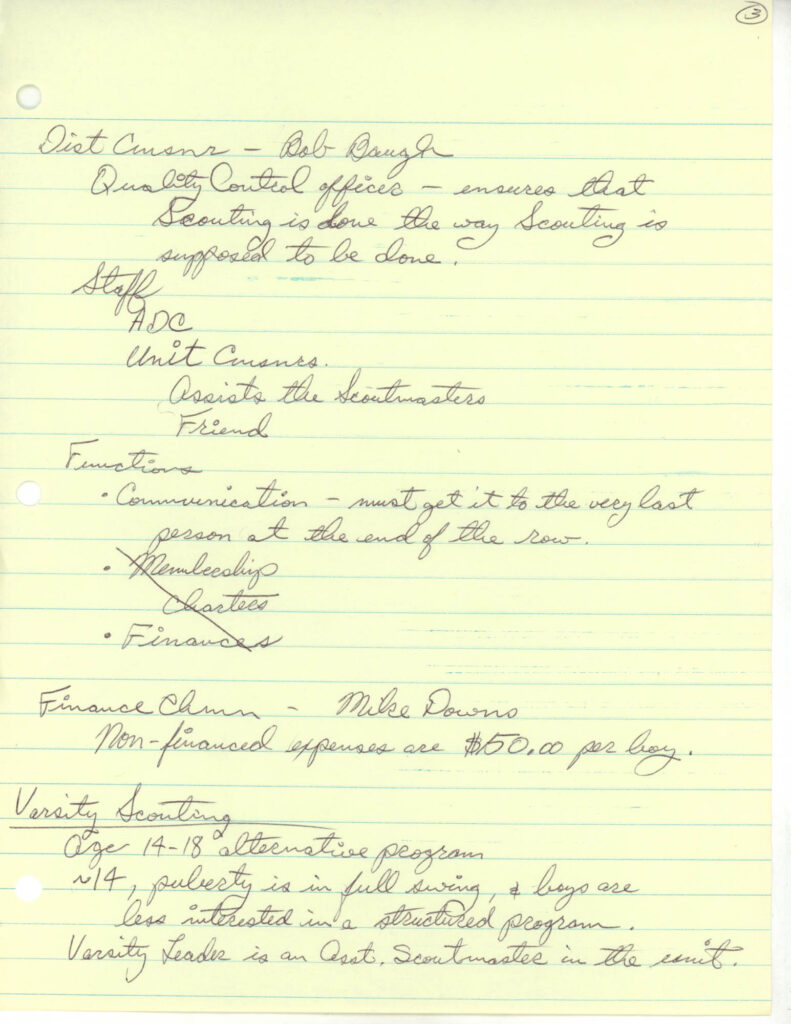 3
Dist Cmsnr – Bob Baugh
Quality Control officer – ensures that
Scouting is done the way Scouting is
supposed to be done.
Staff
ADC
Unit Cmsnrs.
Assists the Scoutmasters
Friend
Functions
• Communication – must get it to the very last
person at the end of the row.
• Membership
Charters
• Finances
Finance Chmn – Mike Downs
Non-financed expenses are $50.00 per boy.
Varsity Scouting
Age 14-18 alternative program
~14, puberty is in full swing, & boys are
less interested in a structured program.
Varsity Leader is an Asst. Scoutmaster in the unit.